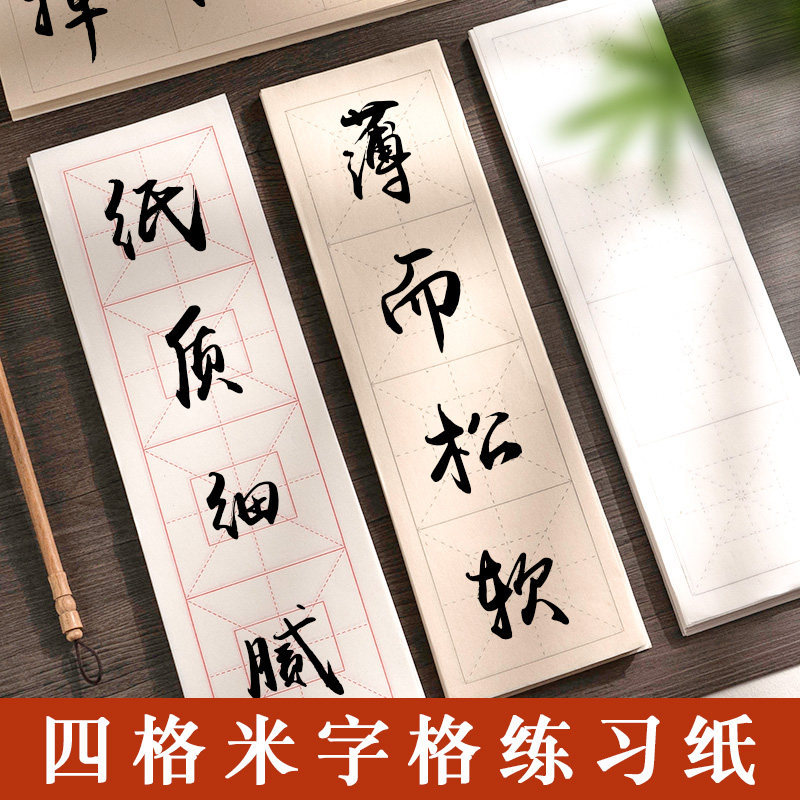 纸质细腻
薄而松软
四格米字格练习纸